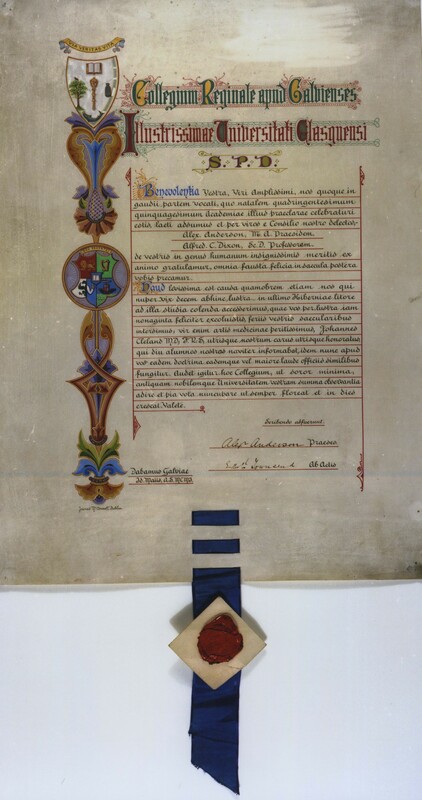 VIA VERITAS VITA
Collegium Reginale apud Galvienses
Illustrissimae Universitati Glasguensi
S. P. D.
Benevolentia Vestra, Viri Amplissimi, nos quoque in
gaudii partem vocati, quo natalem quadringentesimum
quinquagesimum Academiae illius praeclarae celebraturi
estis, laeti adsumus et per viros e Consilio nostro delectos,
Alex. Anderson, M. A. Praesidem,
Alfred. C. Dixon, Sc. D. Professorem,
de vestris in genus humanum insignissimis meritis ex
animo gratulamur, omnia fausta felicia in saecula postera
vobis precamur.
Haud levissima est causa quamobrem etiam nos qui
nuper, vix decem abhinc lustra, in ultimo Hiberniae litore
ad illa studia colenda accesserimus, quae vos per lustra iam
nonaginta feliciter excoluistis, feriis vestris saecularibus
intersimus; vir enim artis medicinae peritissimus, Johannes
Cleland M.D., F.R.S., utrisque nostrum carus utrisque honoratus,
qui diu alumnos nostros noviter informabat, idem nunc apud
vos eadem doctrina eademque vel maiore laude officiis similibus
fungitur. Audet igitur hoc Collegium, ut soror minima,
antiquam nobilemque Universitatem vestram summa observantia
adire et pia vota nuncupare ut semper floreat et in dies
crescat. Valete.
Scribendo adfuerunt
Alexr Anderson Praeses.
Ab Actis
Dabamus Galviae
Id. Maiis, A.S. MCMI.